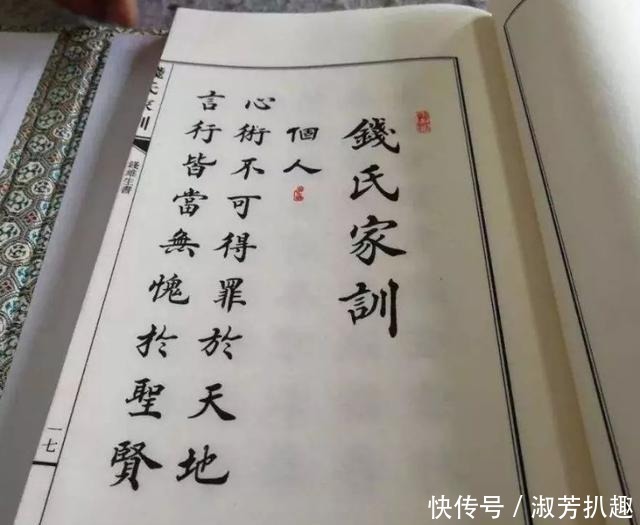 錢氏家訓
個人
心術不可得罪於天地
言行皆當無愧於聖賢
錢氏家訓
錢維生書
一七
快传号／淑芳扒趣